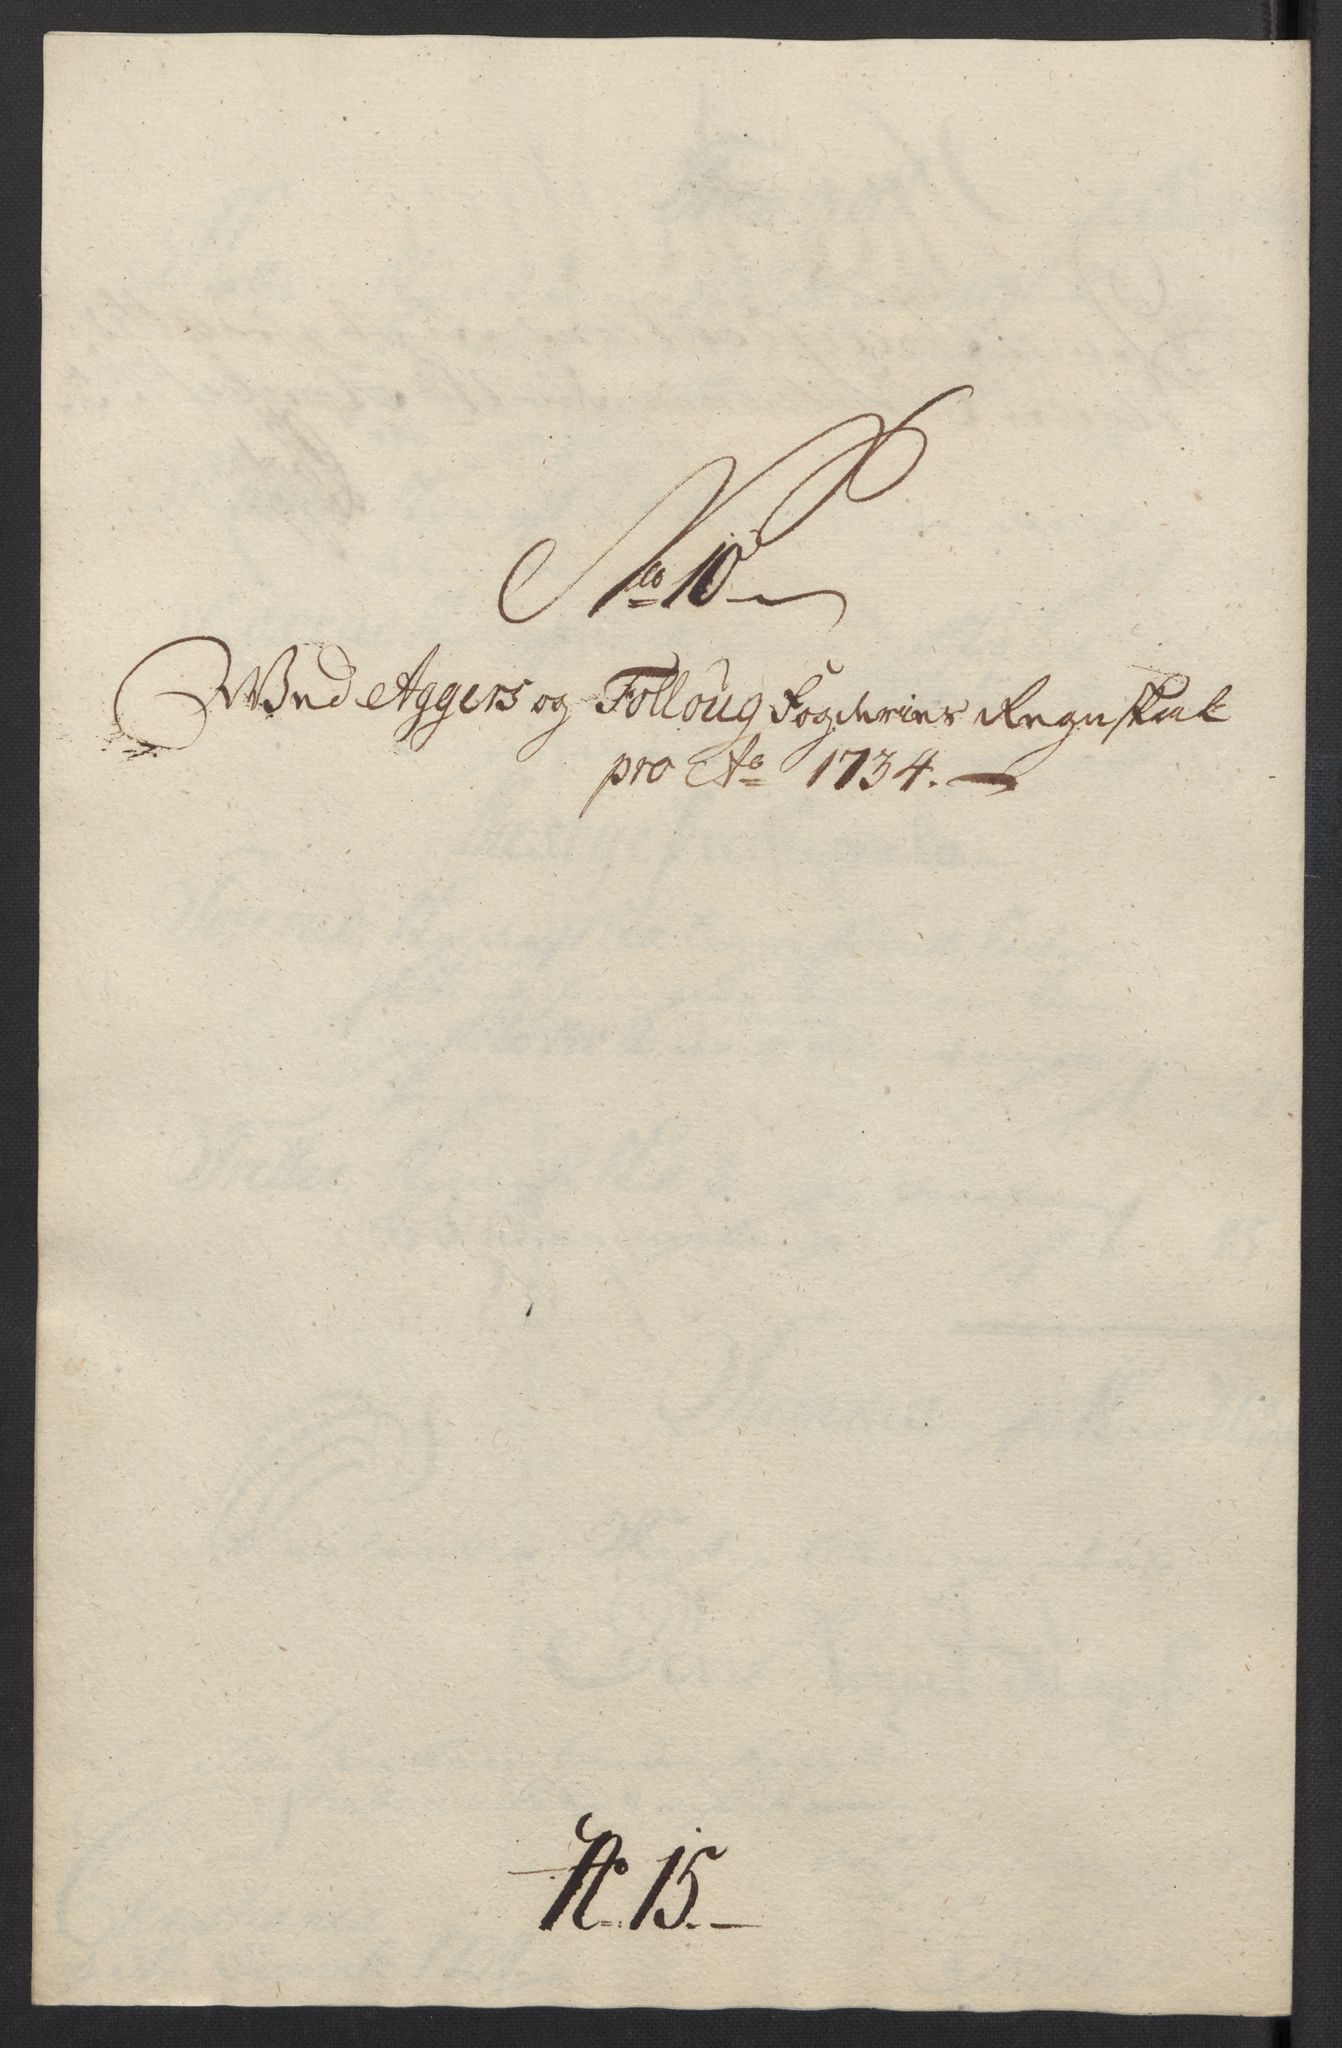 No 10
Wed Aggers og Folloug Fogderies Regnskab
pro Ao 1734.
No. 15.